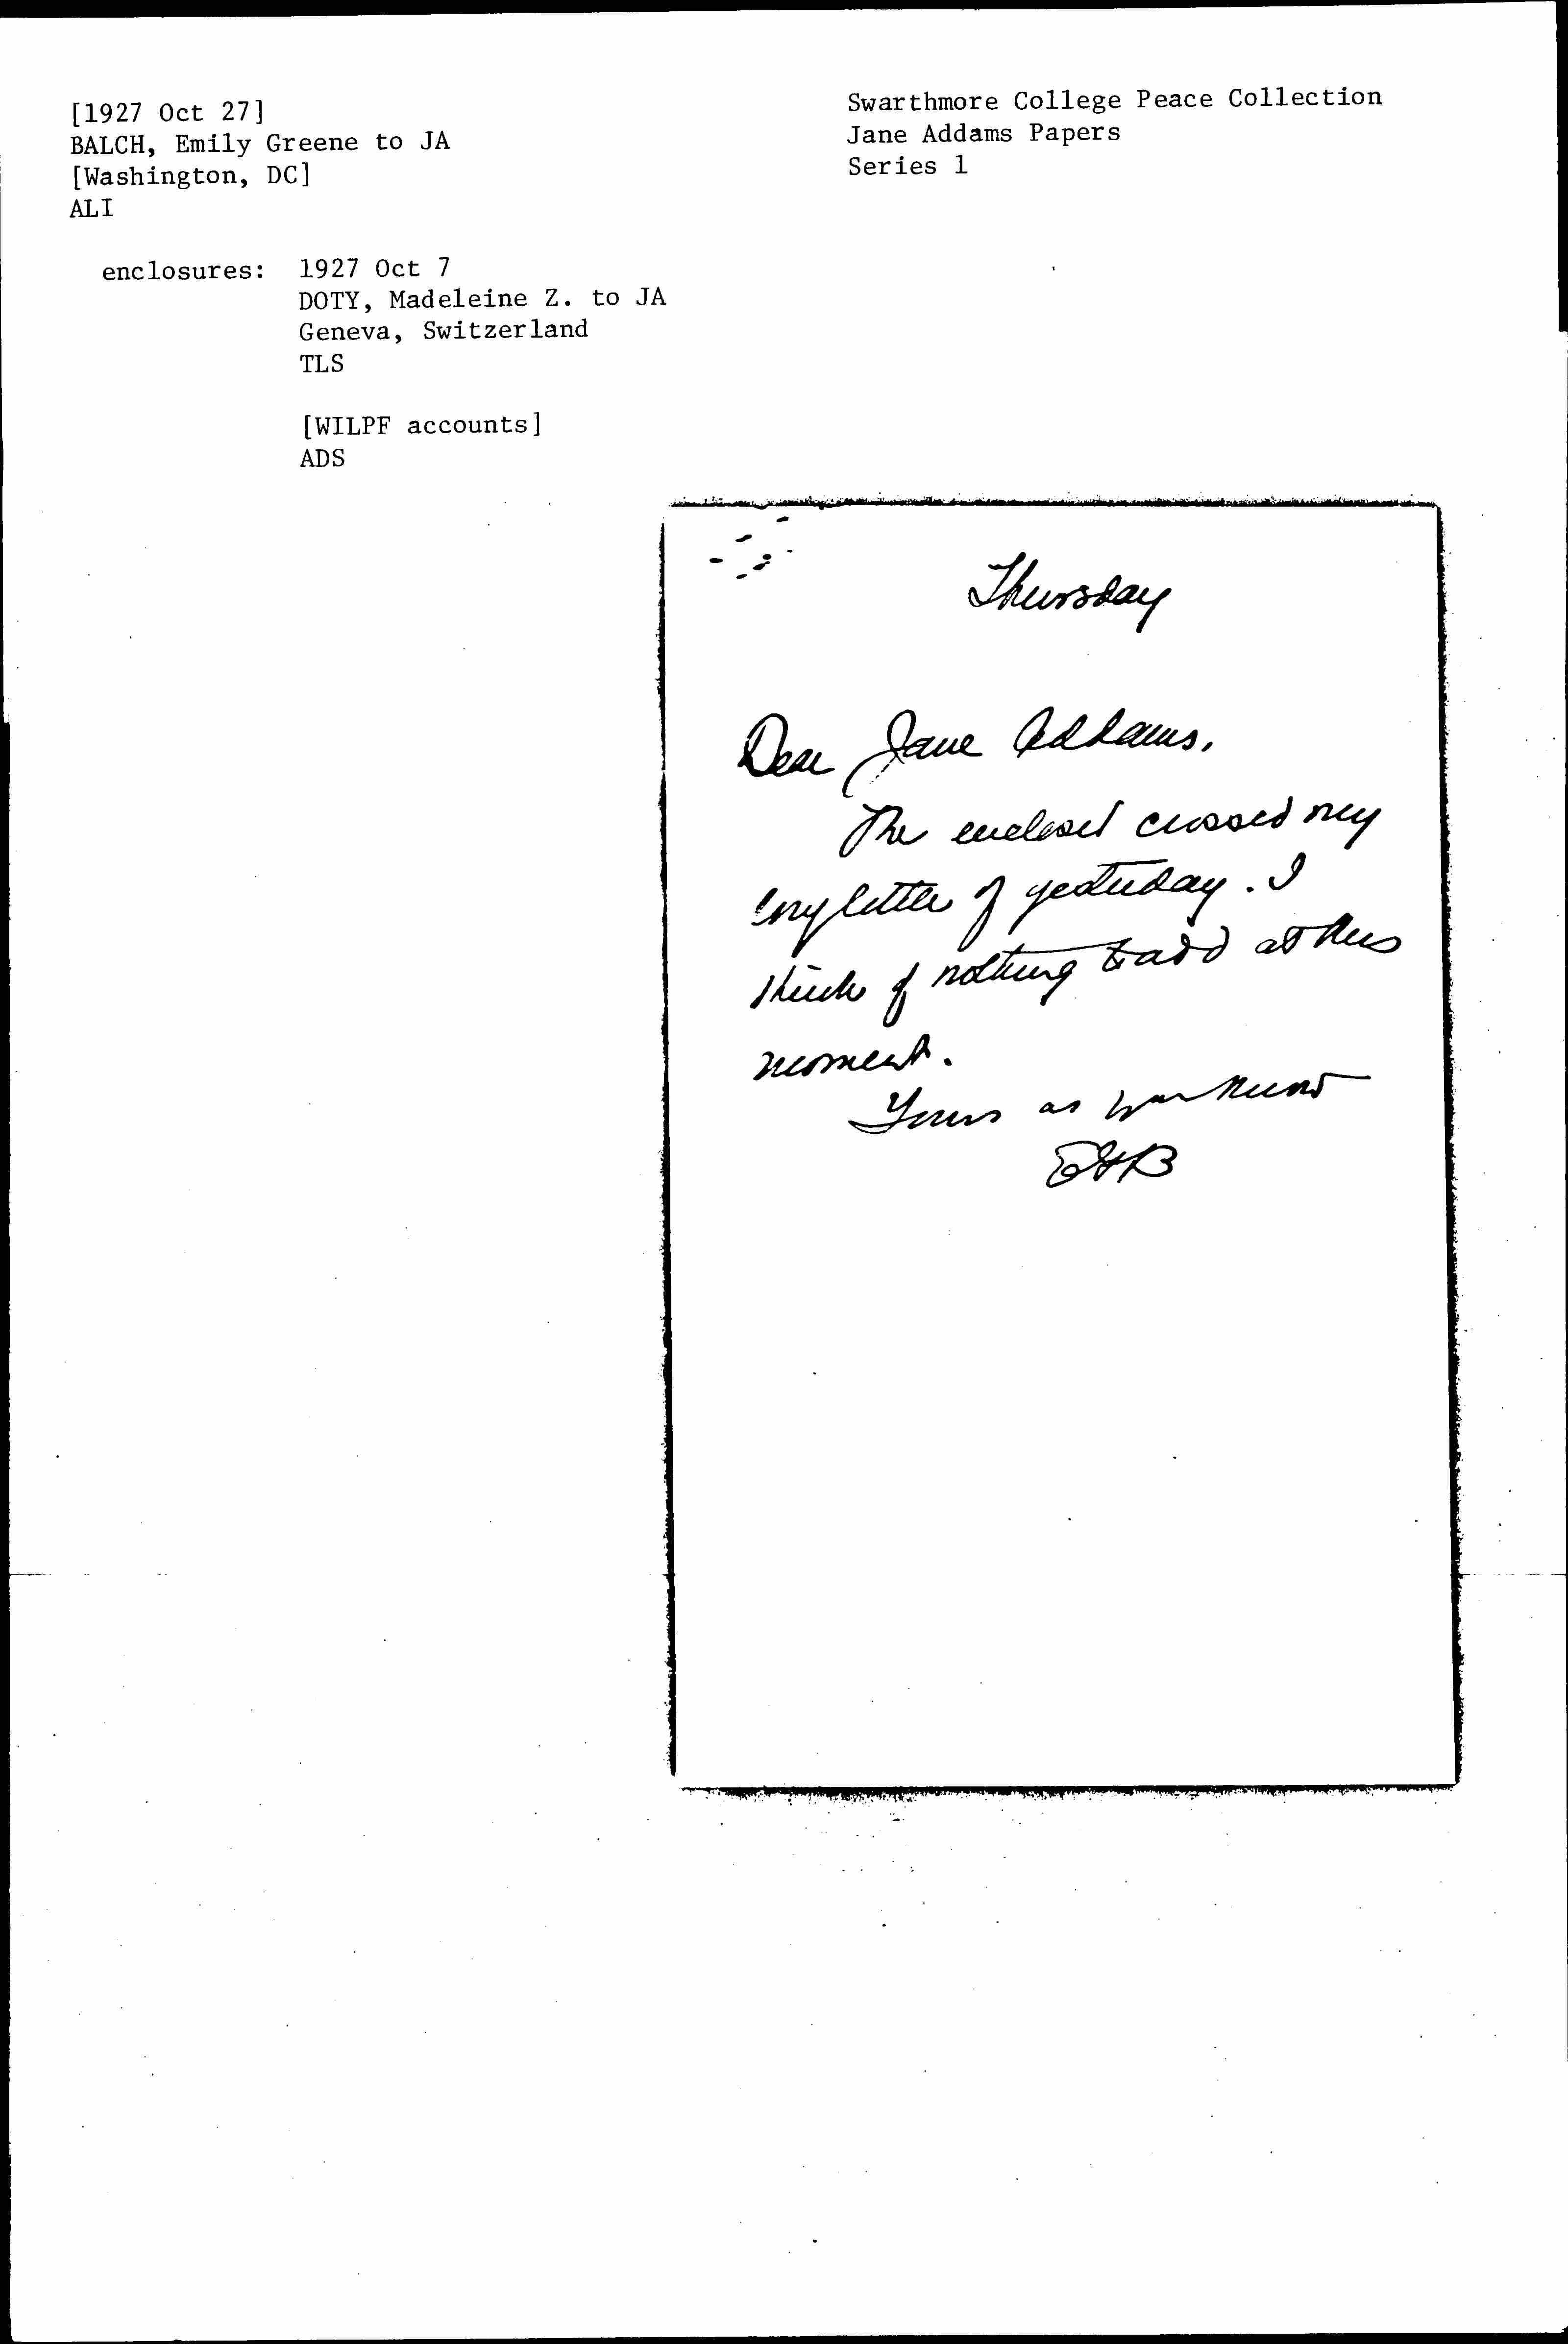 [1927 Oct 27]
BALCH, Emily Greene to JA
[Washington, DC]
ALI
Swarthmore College Peace Collection
Jane Addams Papers
Series 1
enclosures: 1927 Oct 7
DOTY, Madeleine Z. to JA
Geneva, Switzerland
TLS
[WILPF accounts]
ADS
Thursday
Dear Jane Addams,
The enclosed crossed my
long letter of yesterday. I
think of nothing to add at this
moment.
Yours as
EGB